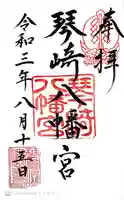 奉拝
琴崎八幡宮
令和三年八月十五日